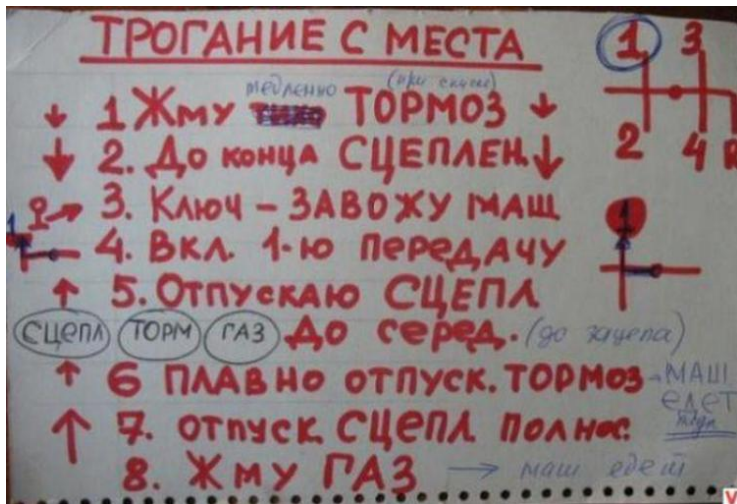 ТРОГАНИЕ С МЕСТА
1 3
2 4 R
медленно (при спуске)
1 Жму ТОРМОЗ
2. До конца СЦЕПЛЕН.
3. Ключ – ЗАВОЖУ МАШ
4. Вкл. 1-ю ПЕРЕДАЧУ
1
1
5. Отпускаю СЦЕПЛ
СЦЕПЛ ТОРМ ГАЗ До серед. (до зацепа)
6 ПЛАВНО ОТПУСК. ТОРМОЗ – МАШ
ЕДЕТ
7. отпуск. СЦЕПЛ полнос.
8. Жму ГАЗ → маш едет